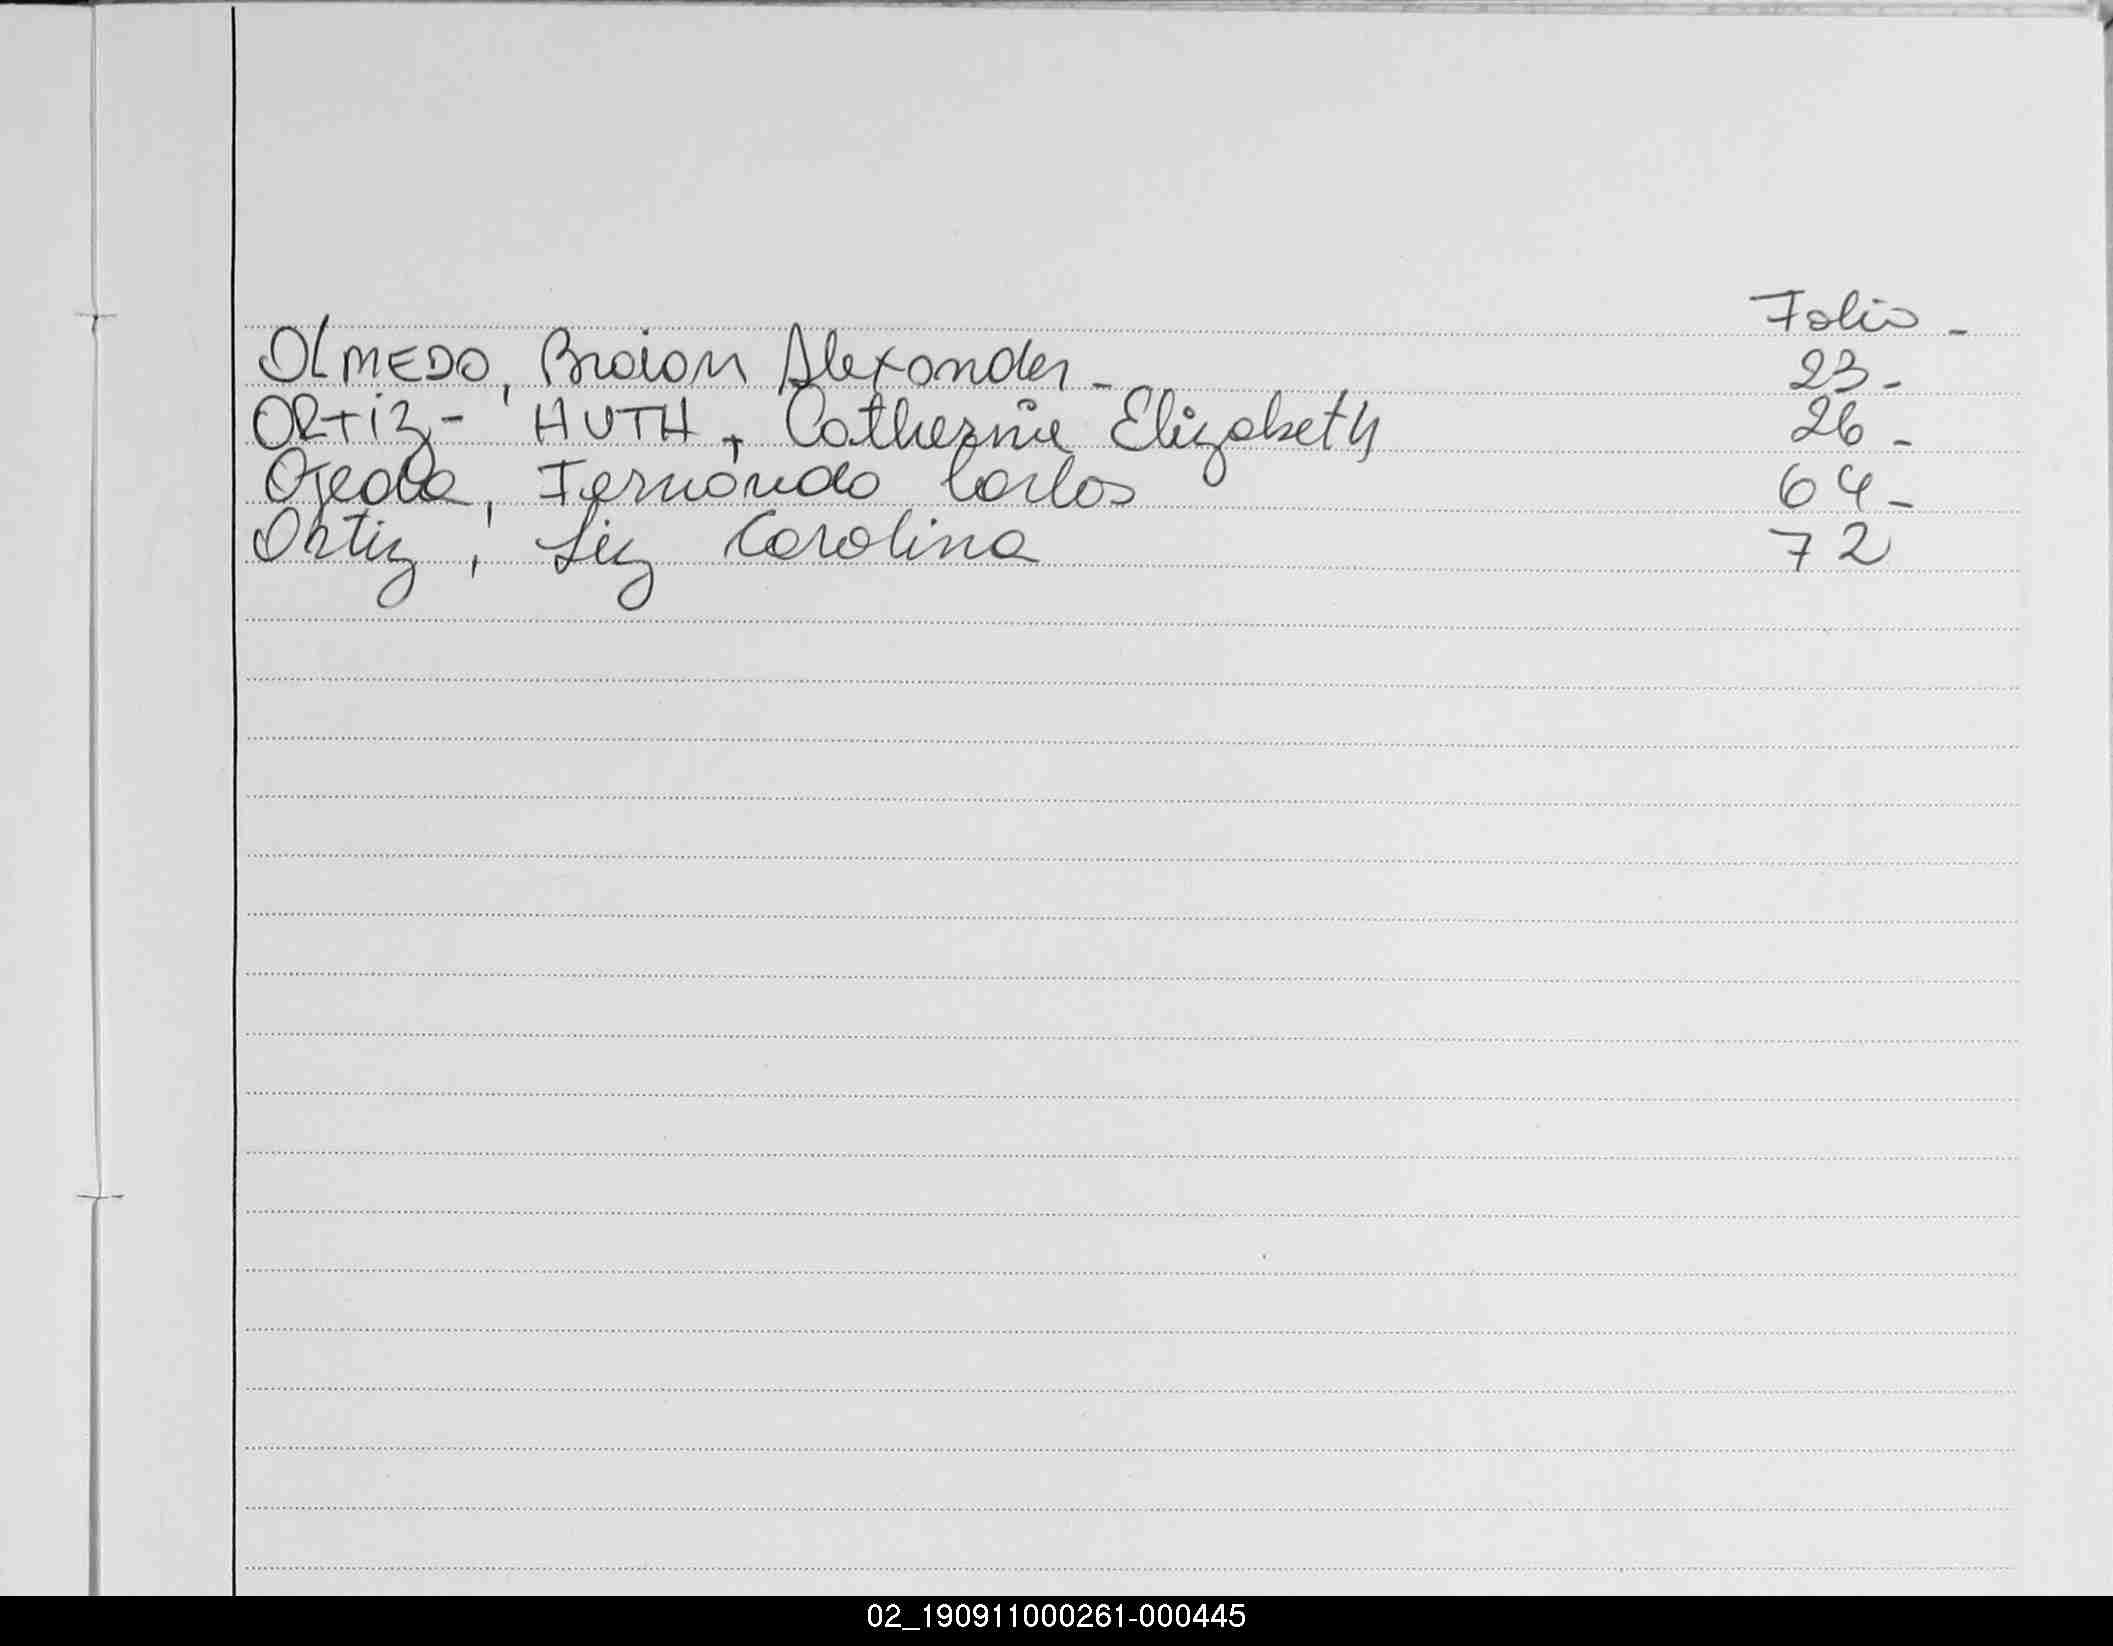 Folio -
OLMEDO, Braian Alexander - 23 -
ORTIZ - HUTH, Catherine Elizabeth 26 -
Ojeda, Fernando Carlos 64 -
Ortiz, Liz Carolina 72
02_190911000261-000445